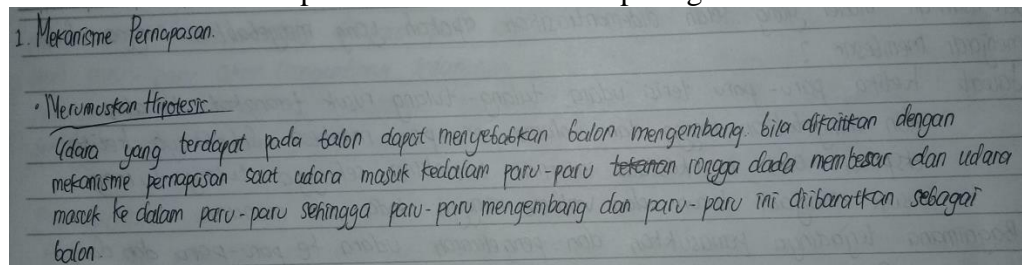 1. Mekanisme Pernapasan.
• Merumuskan Hipotesis.
Udara yang terdapat pada balon dapat menyebabkan balon mengembang. bila dikaitkan dengan
mekanisme pernapasan saat udara masuk kedalam paru-paru tekanan rongga dada membesar dan udara
masuk ke dalam paru-paru sehingga paru-paru mengembang dan paru-paru ini diibaratkan sebagai
balon.